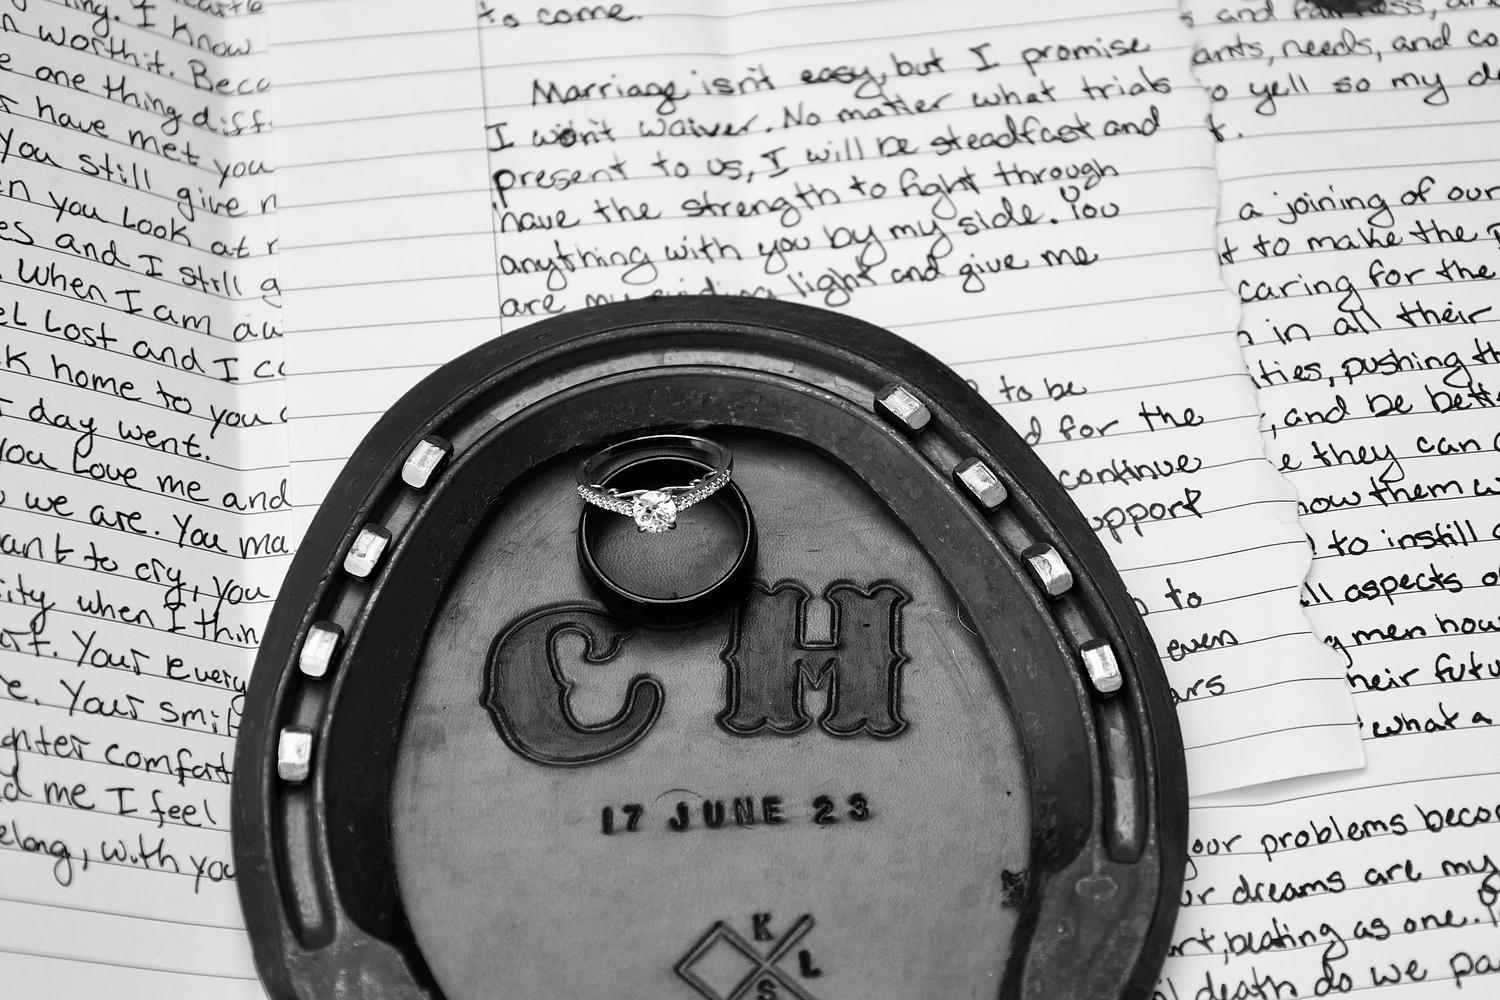 ing. I know
n worthit. Beca
e one thing diff
r have met you
You still give
n you look at
es and I still g
when I am au
el Lost and I
k home to you
day went.
you Love me and
we are. You ma
ant to cry, you
ity when I thin
art. Your every
e. Your smil
ghter comfort
d me I feel
elong, with you
to come.
Marriage isn't easy, but I promise
I won't waiver. No matter what trials
present to us, I will be steadfast and
have the strength to fight through
anything with you by my side. You
are my guiding light and give me
to be
d for the
continue
upport
to
even
ars
s and fairness,
ants, needs, and co
o yell so my
t.
a joining of our
t to make the
caring for the
n in all their
ties, pushing th
, and be bette
e they can
now them w
to instill
ll aspects o
g men how
heir futu
what a
our problems becom
ur dreams are my
art, beating as one.
il death do we pa
C H
17 JUNE 23
K
L
S